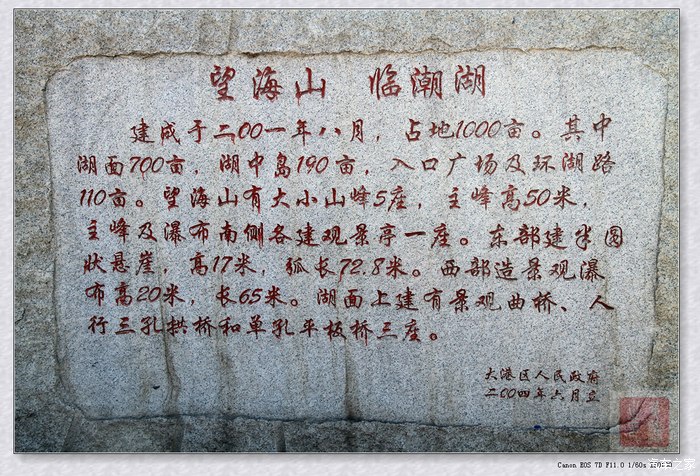 望海山 临潮湖
建成于二00一年八月，占地1000亩。其中
湖面700亩，湖中岛190亩，入口广场及环湖路
110亩。望海山有大小山峰5座，主峰高50米，
主峰及瀑布南侧各建观景亭一座。东部建半圆
状悬崖，高17米，弧长72.8米。西部造景观瀑
布高20米，长65米。湖面上建有景观曲桥、人
行三孔拱桥和单孔平板桥三座。
大港区人民政府
二00四年六月立
Canon EOS 7D F11.0 1/60s